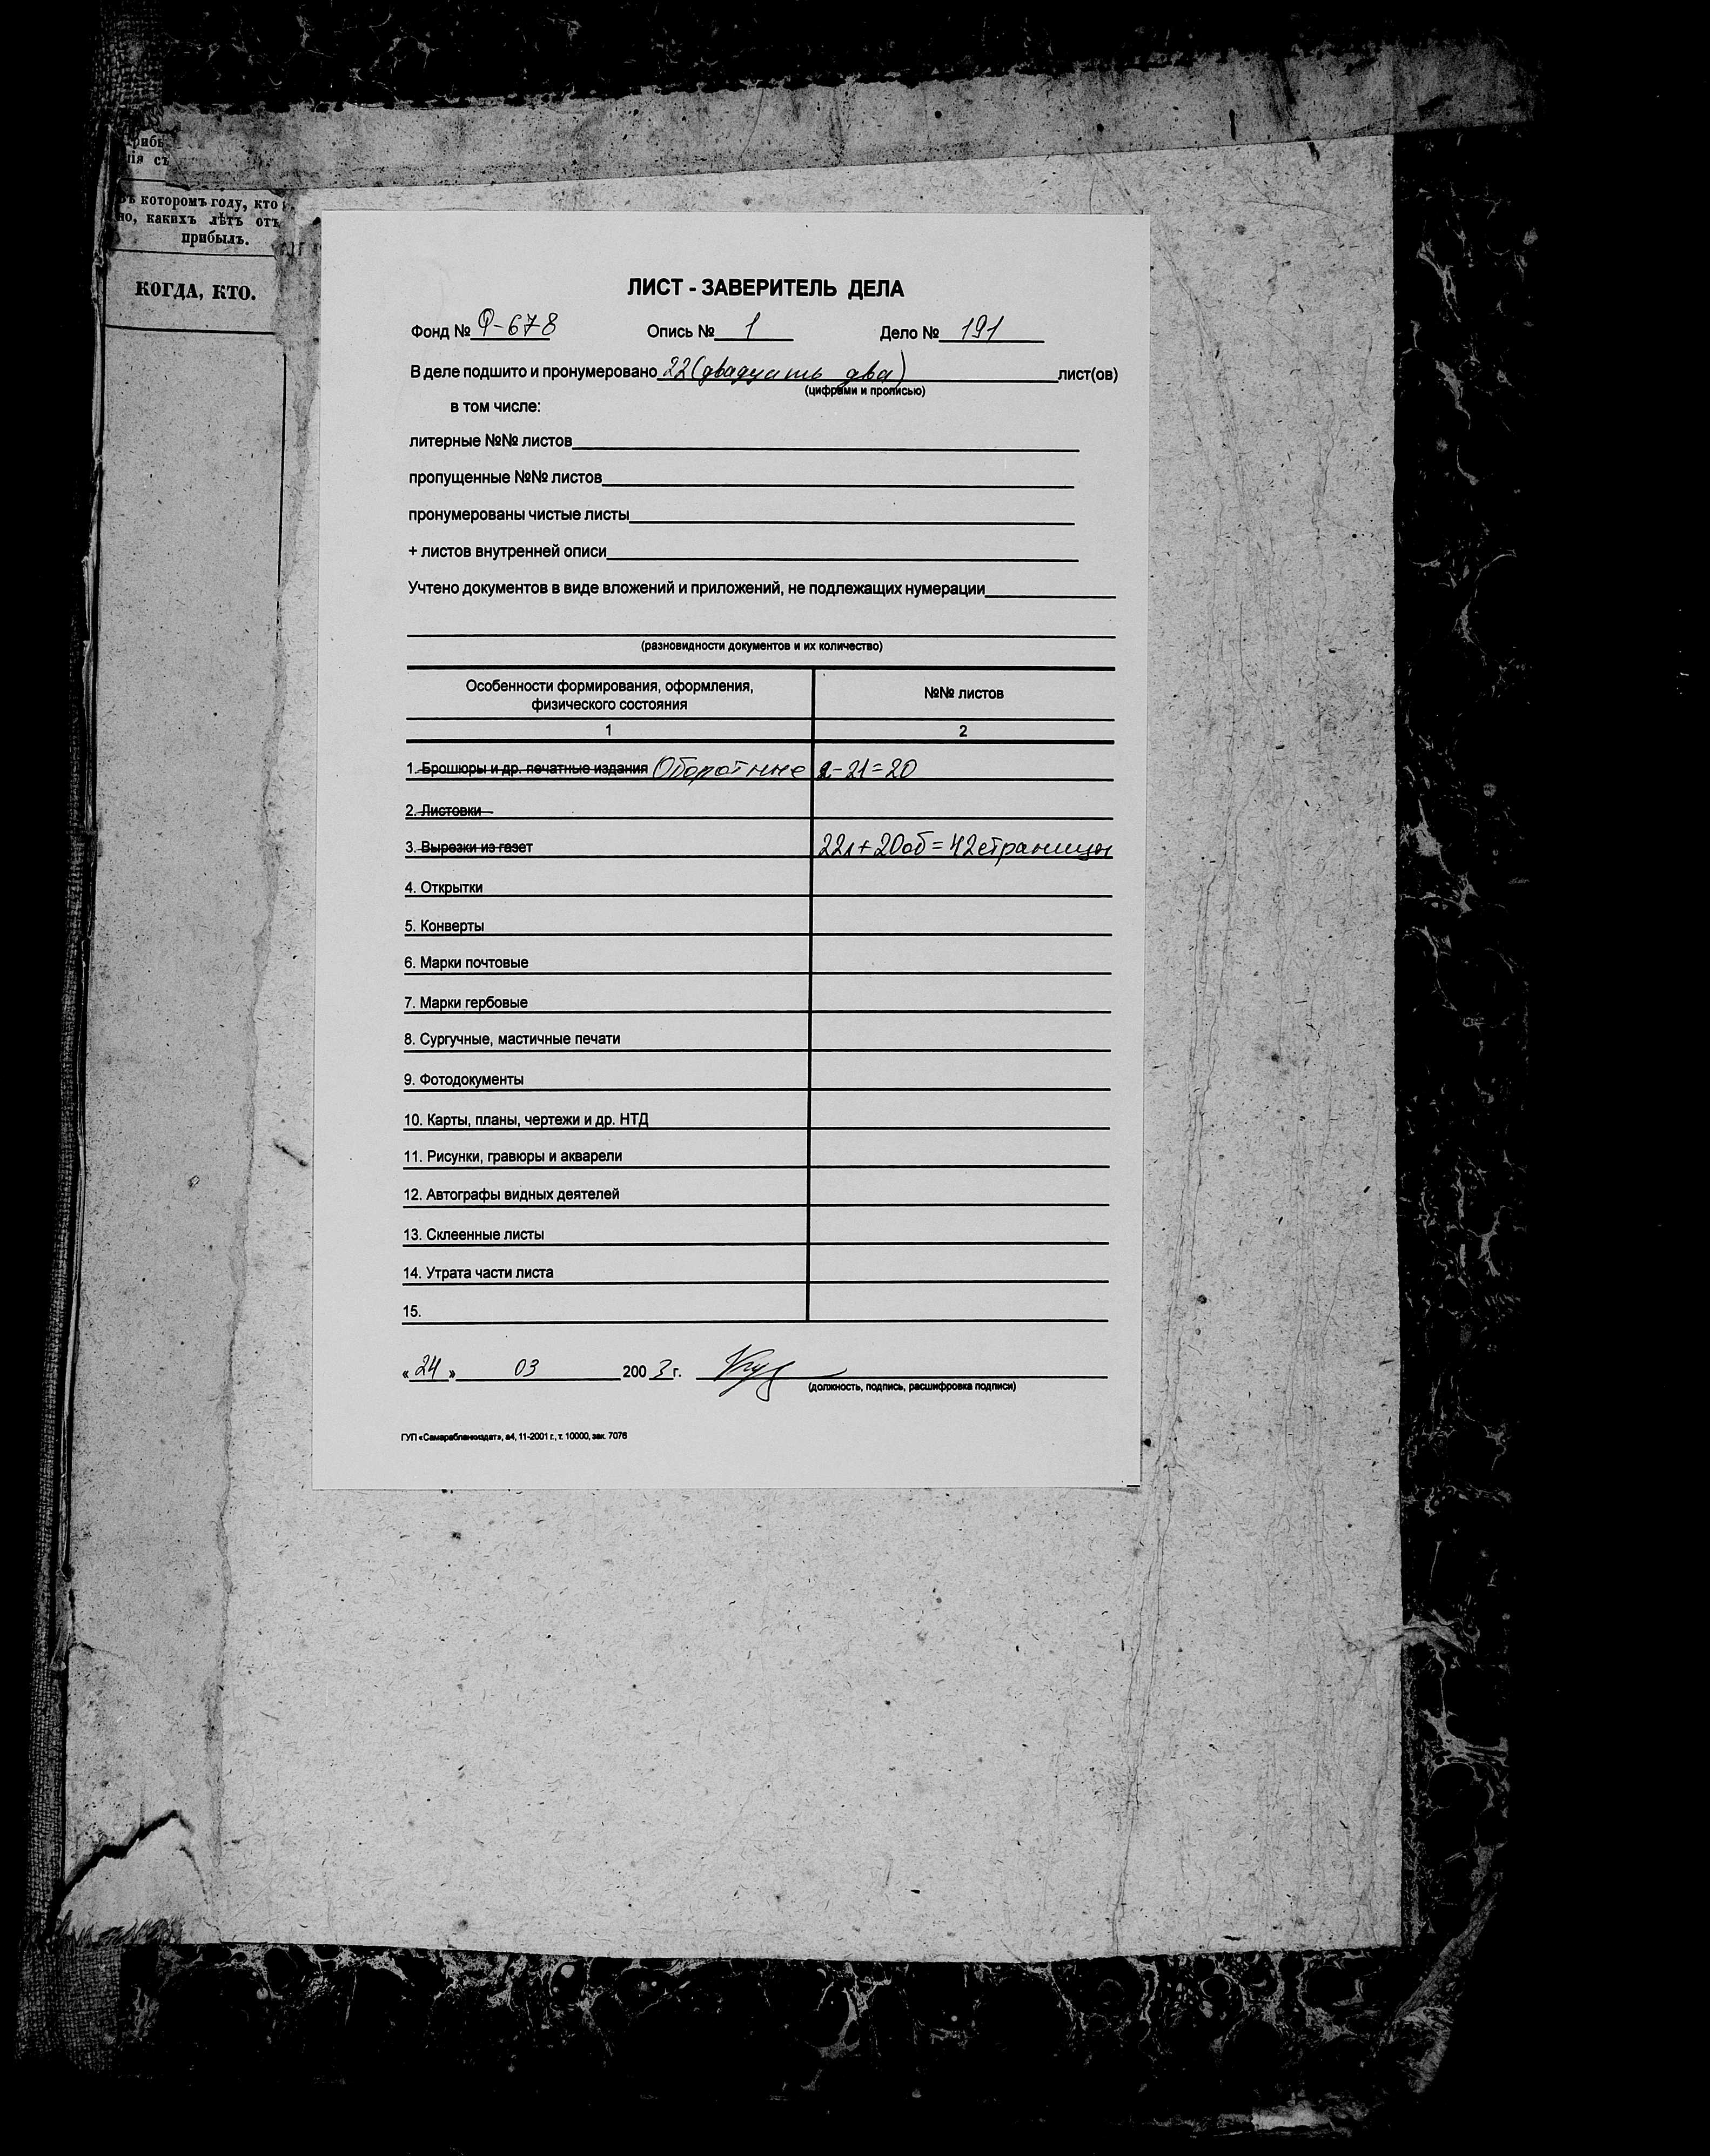 нія съ
въ которомъ году, кто
но, какихъ лѣтъ отъ
прибылъ.
КОГДА, КТО.
ЛИСТ - ЗАВЕРИТЕЛЬ ДЕЛА
Фонд № Ф-678 Опись № 1 Дело № 191
В деле подшито и пронумеровано 22 (двадцать два) лист(ов)
(цифрами и прописью)
в том числе:
литерные №№ листов
пропущенные №№ листов
пронумерованы чистые листы
+ листов внутренней описи
Учтено документов в виде вложений и приложений, не подлежащих нумерации
(разновидности документов и их количество)
Особенности формирования, оформления, №№ листов
физического состояния
1 2
1. Брошюры и др. печатные издания Оборотные 2-21=20
2. Листовки
3. Вырезки из газет 22л+20об=42страницы
4. Открытки
5. Конверты
6. Марки почтовые
7. Марки гербовые
8. Сургучные, мастичные печати
9. Фотодокументы
10. Карты, планы, чертежи и др. НТД
11. Рисунки, гравюры и акварели
12. Автографы видных деятелей
13. Склеенные листы
14. Утрата части листа
15.
«24» 03 2003 г.
(должность, подпись, расшифровка подписи)
ГУП «Самарабланкиздат», а4, 11-2001 г., т. 10000, зак. 7076